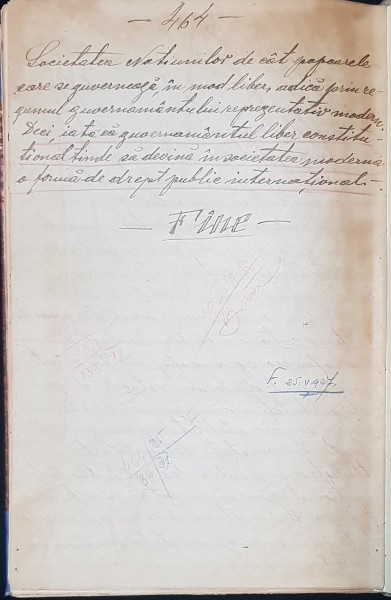 — 464 —
Societatea Națiunilor de cât popoarele
care se guvernează în mod liber, adică prin re-
gimul guvernământului reprezentativ modern.
Deci, iată că guvernământul liber constitu-
tional tinde să devină în societatea modernă
o formă de drept public internațional. —
— Fine —
F. 25.V.927.
464 25